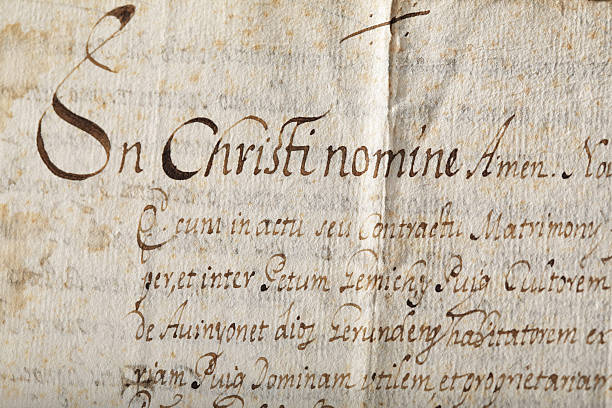 In Christi nomine Amen. Nou
cum in actu seu Contractu Matrimony
per, et inter Petrum Puig Cultorem
de Avinyonet dioz Gerundeng habitatorem ex
riam Puig Dominam vtilem, et proprietariam